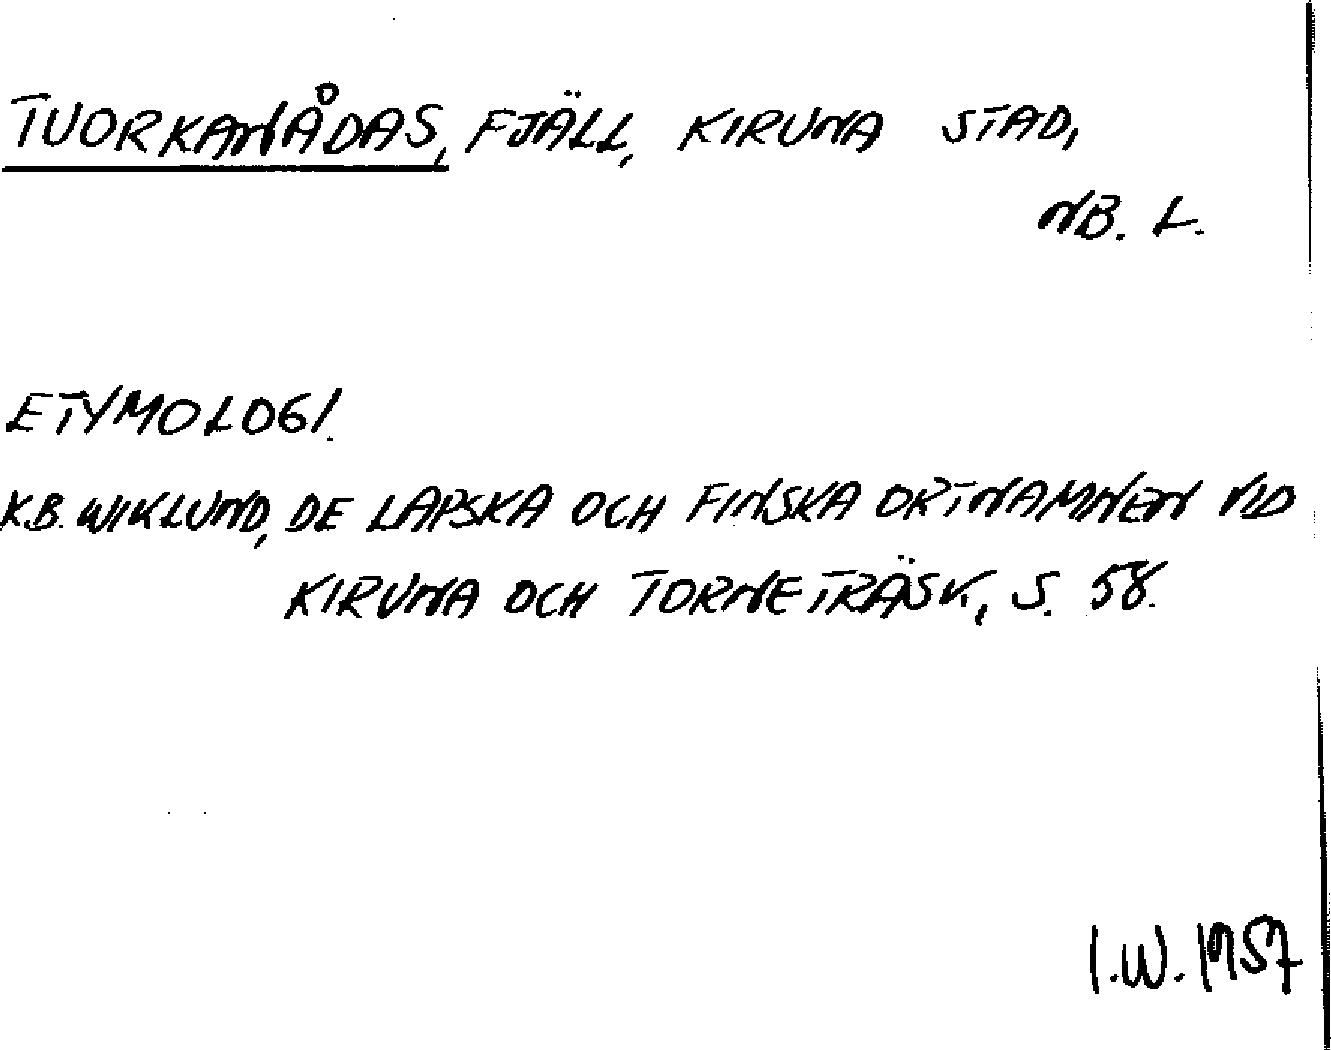 TUORKANÅDAS, FJÄLL, KIRUNA STAD,
NB. L.
ETYMOLOGI.
K.B. WIKLUND, DE LAPSKA OCH FINSKA ORTNAMNEN VID
KIRUNA OCH TORNETRÄSK, S. 58.
I.W. 1957